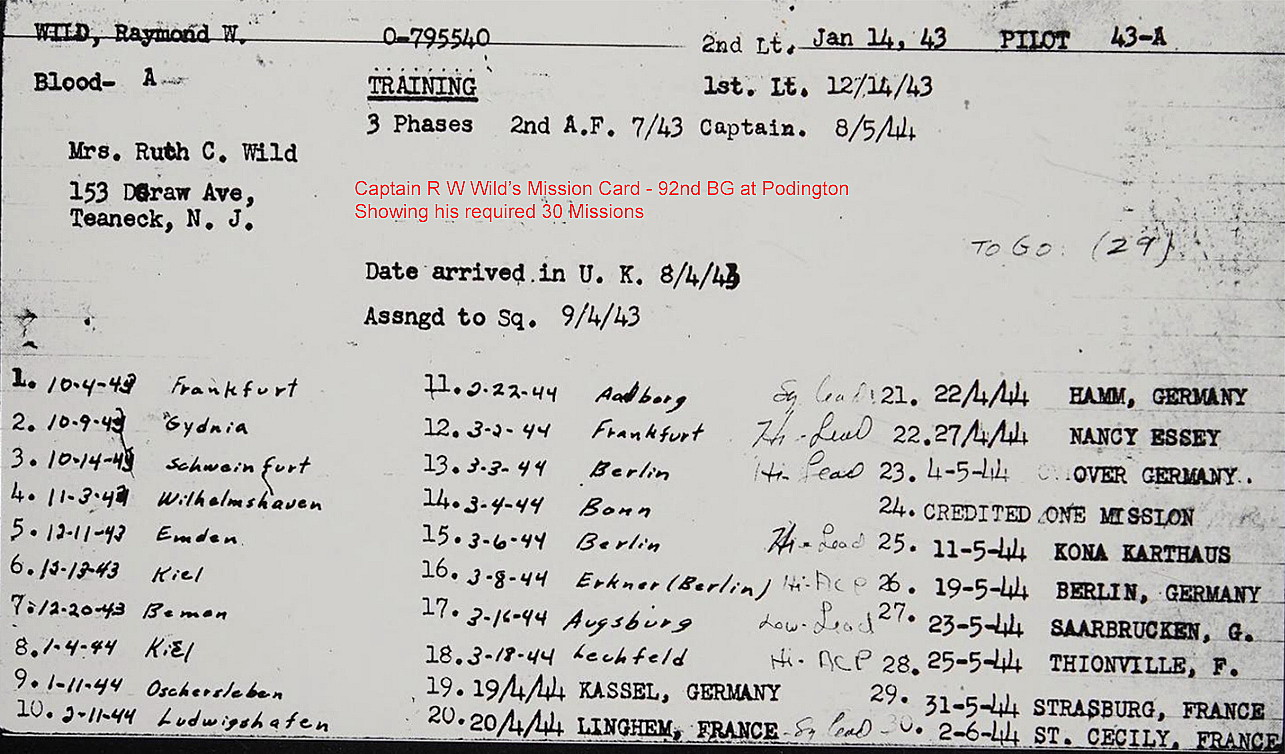 WILD, Raymond W. O-795540 2nd Lt. Jan 14, 43 PILOT 43-A
Blood- A TRAINING 1st. Lt. 12/14/43
3 Phases 2nd A.F. 7/43 Captain. 8/5/44
Mrs. Ruth C. Wild
153 DGraw Ave,
Teaneck, N. J.
Captain R W Wild's Mission Card - 92nd BG at Podington
Showing his required 30 Missions
TO GO. (29)
Date arrived in U. K. 8/4/43
Assngd to Sq. 9/4/43
1. 10-4-43 Frankfurt
2. 10-9-43 Gydnia
3. 10-14-43 Schweinfurt
4. 11-3-43 Wilhelmshaven
5. 12-11-43 Emden
6. 12-13-43 Kiel
7. 12-20-43 Bemen
8. 1-4-44 Kiel
9. 1-11-44 Oschersleben
10. 2-11-44 Ludwigshafen
11. 2-22-44 Aalborg Sq lead
12. 3-2-44 Frankfurt Hi-Lead
13. 3-3-44 Berlin Hi-Lead
14. 3-4-44 Bonn
15. 3-6-44 Berlin Hi-Lead
16. 3-8-44 Erkner (Berlin) Hi-ACP
17. 3-16-44 Augsburg Low-Lead
18. 3-18-44 Lechfeld Hi-ACP
19. 19/4/44 KASSEL, GERMANY
20. 20/4/44 LINGHEM, FRANCE - Sq lead
21. 22/4/44 HAMM, GERMANY
22. 27/4/44 NANCY ESSEY
23. 4-5-44 OVER GERMANY.
24. CREDITED ONE MISSION
25. 11-5-44 KONA KARTHAUS
26. 19-5-44 BERLIN, GERMANY
27. 23-5-44 SAARBRUCKEN, G.
28. 25-5-44 THIONVILLE, F.
29. 31-5-44 STRASBURG, FRANCE
30. 2-6-44 ST. CECILY, FRANCE